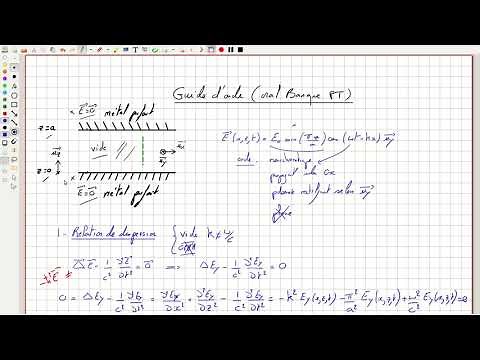 Guide d'onde (oral Banque PT)
E⃗=0⃗ métal parfait
z=a
vide
u⃗z
u⃗x
u⃗y
z=0
E⃗=0⃗ métal parfait
E⃗(x,z,t) = E₀ sin(πz/a) cos(ωt-kx) u⃗y
onde progressive
selon Ox
polarisé rectilignt selon u⃗y
plane
1 - Relation de dispersion { vide k≠ω/c
Δ⃗E⃗ - 1/c² ∂²E⃗/∂t² = 0⃗ ⟹ ΔEy - 1/c² ∂²Ey/∂t² = 0
0 = ΔEy - 1/c² ∂²Ey/∂t² = ∂²Ey/∂x² + ∂²Ey/∂z² - 1/c² ∂²Ey/∂t² = -k² Ey(x,z,t) - π²/a² Ey(x,z,t) + ω²/c² Ey(x,z,t) = 0